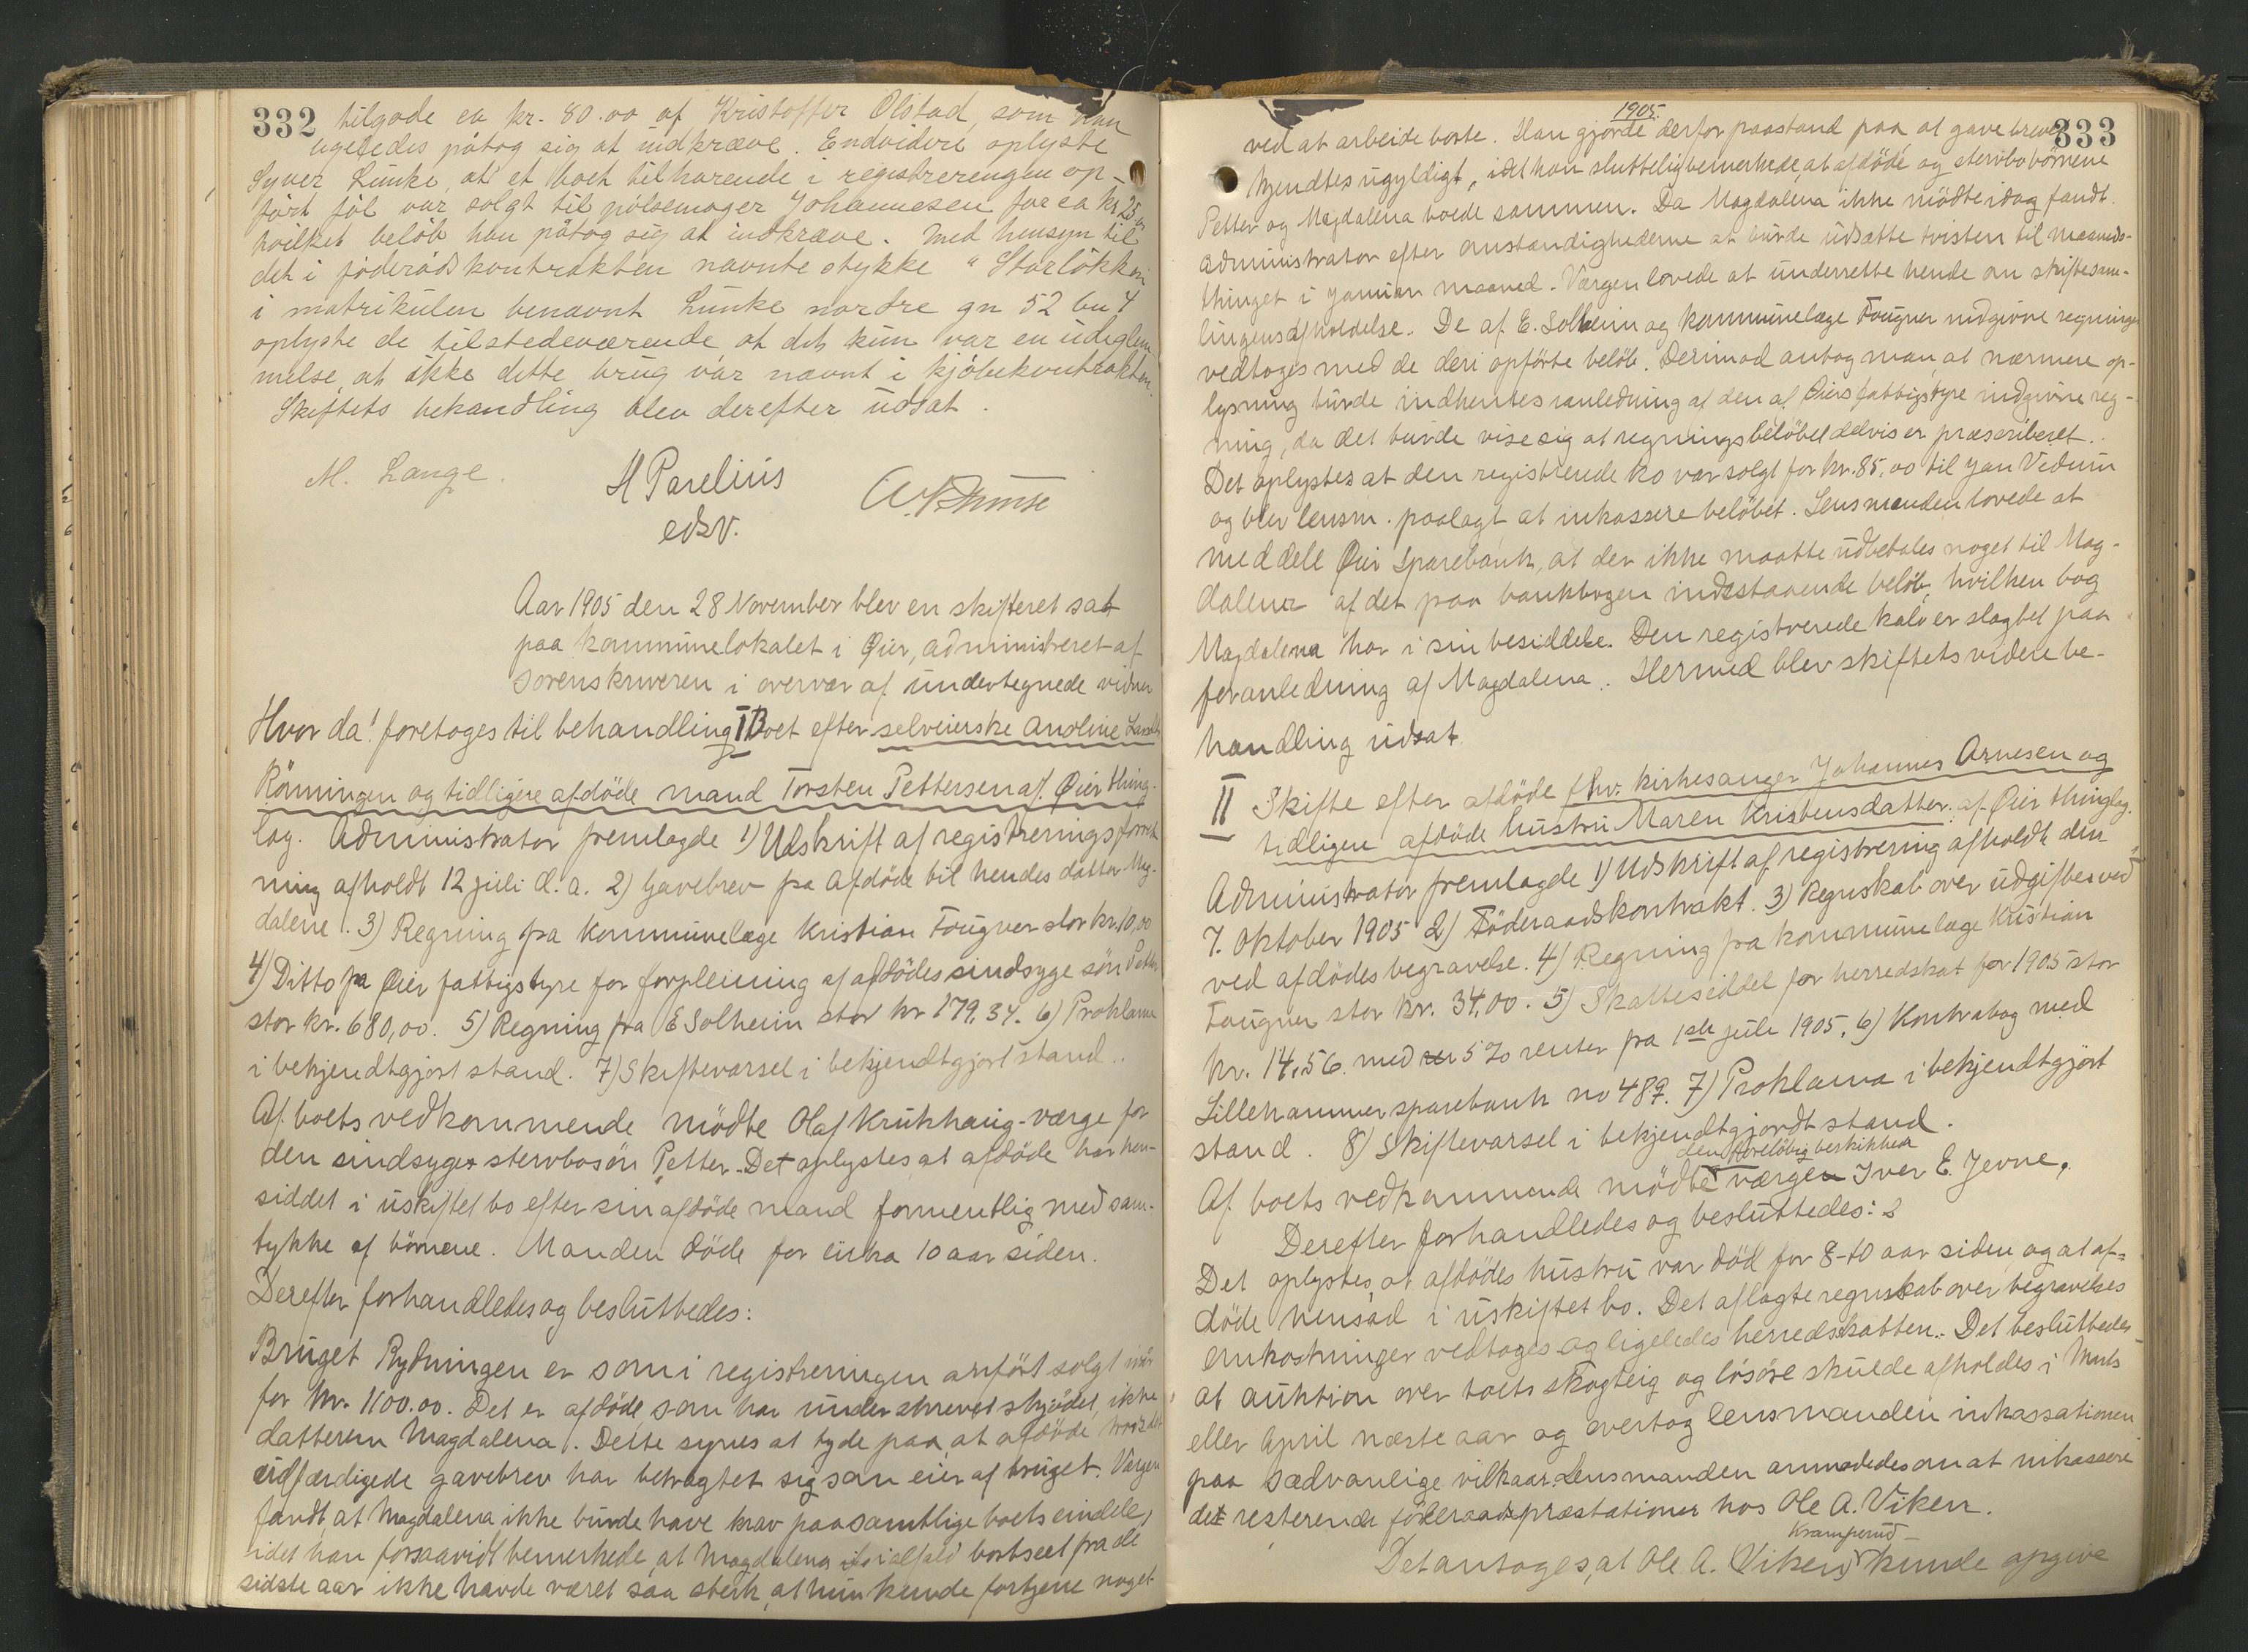 332
tilgode ca kr. 80.00 af Kristoffer Olstad, som han
ligeledes påtog sig at indkræve. Endvidere oplyste
Syver Lunke, at et boet tilhørende i registreringen op-
ført føl var solgt til pølsemager Johannesen for ca kr 25.00
hvilket beløb han påtog sig at indkræve. Med hensyn til
det i føderådskontrakten nævnte stykke "Storløkken
i matrikulen benævnt Lunke nordre gn 52 bn 4
oplyste de tilstedeværende at det kun var en udeglem-
melse, at ikke dette brug var nævnt i kjøbekontrakten.
Skiftets behandling blev derefter udsat.
M. Lange. H Parelius
edsv.
Aar 1905 den 28 November blev en skifteret sat
paa kommunelokalet i Øier, administreret af
sorenskriveren i overvær af undertegnede vidner
Hvor da! foretoges til behandling I Boet efter selveierske Anoline Larsdtr
Rønningen og tidligere afdøde mand Torsten Pettersen af Øier thing-
lag. Administrator fremlagde 1) Udskrift af registreringsforret-
ning afholdt 12 juli d. a. 2) Gavebrev fra afdøde til hendes datter Mag-
dalene. 3) Regning fra kommunelæge Kristian Fougner stor kr. 10,00
4) Ditto fra Øier fattigstyre for forpleining af afdødes sindsyge søn Petter
stor kr. 680,00. 5) Regning fra E Solheim stor kr 179,34. 6) Proklama
i bekjendtgjort stand. 7) Skiftevarsel i bekjendtgjort stand..
Af boets vedkommende mødte Olaf Krukhaug - værge for
den sindsyge stervbosøn Petter. Det oplystes, at afdøde har hen-
siddet i uskiftet bo efter sin afdøde mand formentlig med sam-
tykke af børnene. Manden døde for cirka 10 aar siden.
Derefter forhandledes og besluttedes:
Bruget Rydningen er som i registreringen anført solgt iaar
for kr. 1100.00. Det er afdøde som har underskrevet skjødet, ikke
datteren Magdalena. Dette synes at tyde paa, at afdøde trods det
udfærdigede gavebrev har betragtet sig som eier af bruget. Værgen
fandt, at Magdalena ikke burde have krav paa samtlige boets eiendele,
idet han forsaavidt bemerkede, at Magdalena ialfald bortseet fra de
sidste aar ikke havde været saa sterk, at hun kunde fortjene noget
1905.
333
ved at arbeide borte. Han gjorde derfor paastand paa, at gavebrevet
kjendtes ugyldigt, idet han sluttelig bemerkede, at afdøde og stervbobørnene
Petter og Magdalena boede sammen. Da Magdalena ikke mødte idag fandt
administrator efter omstændighederne at burde udsætte tvisten til maaneds-
thinget i januar maaned. Værgen lovede at underrette hende om skiftesam-
lingens afholdelse. De af E. Solheim og kommunelæge Fougner indgivne regninger
vedtoges med de deri opførte beløb. Derimod antog man, at nærmere op-
lysning burde indhentes i anledning af den af Øiers fattigstyre indgivne reg-
ning, da det turde vise sig at regningsbeløbet delvis er præscriberet..
Det oplystes at den registrerede ko var solgt for kr. 85.00 til Jan Vedum
og blev lensm. paalagt at inkassere beløbet. Lensmanden lovede at
meddele Øier Sparebank, at der ikke maatte udbetales noget til Mag-
dalena af det paa bankbogen indestaaende beløb, hvilken bog
Magdalena har i sin besiddelse. Den registrerede kalv er slagtet paa
foranledning af Magdalena. Hermed blev skiftets videre be-
handling udsat.
II Skifte efter afdøde fhv. kirkesanger Johannes Arnesen og
tidligere afdøde hustru Maren Kristensdatter af Øier thinglag.
Administrator fremlagde 1) Udskrift af registrering afholdt den
7. oktober 1905 2) Føderaadskontrakt. 3) Regnskab over udgifter ved
ved afdødes begravelse. 4) Regning fra kommunelæge Kristian
Fougner stor kr. 34,00. 5) Skatteseddel for herredskat for 1905 stor
kr. 14.56. med 5% renter fra 1ste juli 1905. 6) Kontrabog med
Lillehammer sparebank no 487. 7) Proklama i bekjendtgjort
stand. 8) Skiftevarsel i bekjendtgjordt stand.
den foreløbig beskikkede
Af boets vedkommende mødte værgen Iver E. Jevne.
Derefter forhandledes og besluttedes:
Det oplystes, at afdødes hustru var død for 8-10 aar siden og at af-
døde hensad i uskiftet bo. Det aflagte regnskab over begravelses
omkostninger vedtoges og ligeledes herredskatten. Det besluttedes
at auktion over boets skogteig og løsøre skulde afholdes i Marts
eller April næste aar og overtog lensmanden inkassationen
paa sædvanlige vilkaar. Lensmanden anmodedes om at inkassere
det resterende føderaadspræstationer hos Ole A. Viken.
Kramperud
Det antoges, at Ole A. (Viken) kunde opgive